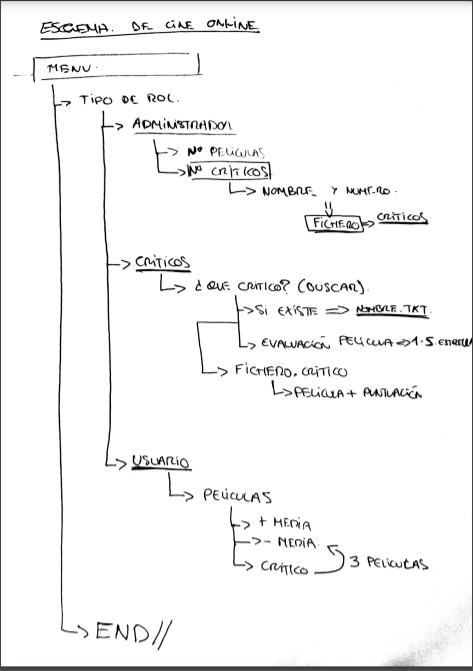 ESQUEMA. DE CINE ONLINE
MENU.
TIPO DE ROL.
ADMINISTRADOR
Nº PELICULAS
Nº CRITICOS
NOMBRE Y NUMERO.
FICHERO => CRITICOS
CRITICOS
¿QUE CRITICO? (BUSCAR).
SI EXISTE => NOMBRE.TXT.
EVALUACIÓN PELICULA => 1-5. ESTRELLA
FICHERO.CRITICO
PELICULA + PUNTUACIÓN
USUARIO
PELICULAS
+ MEDIA
- MEDIA.
CRITICO 3 PELICULAS
END//